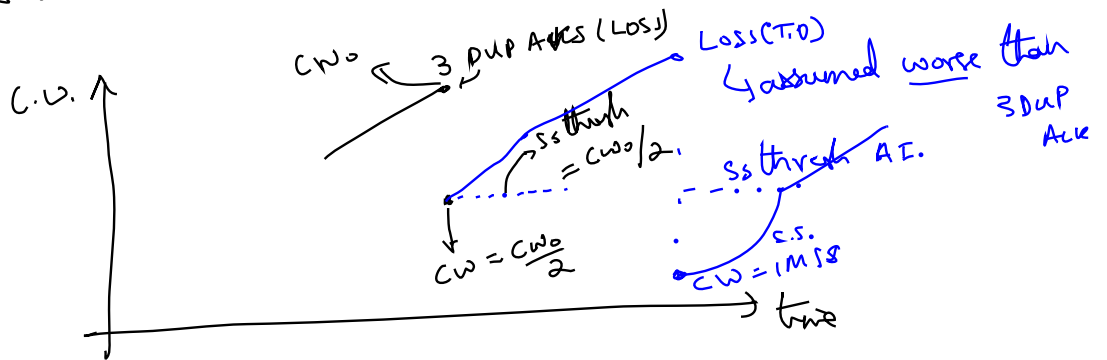 C.W.
CW₀
3 DUP ACKS (LOSS)
LOSS(T.O)
↳ assumed worse than
3 DUP
ACK
ssthresh
= CW₀/2
CW = CW₀/2
ssthresh A.I.
S.S.
CW = 1MSS
time